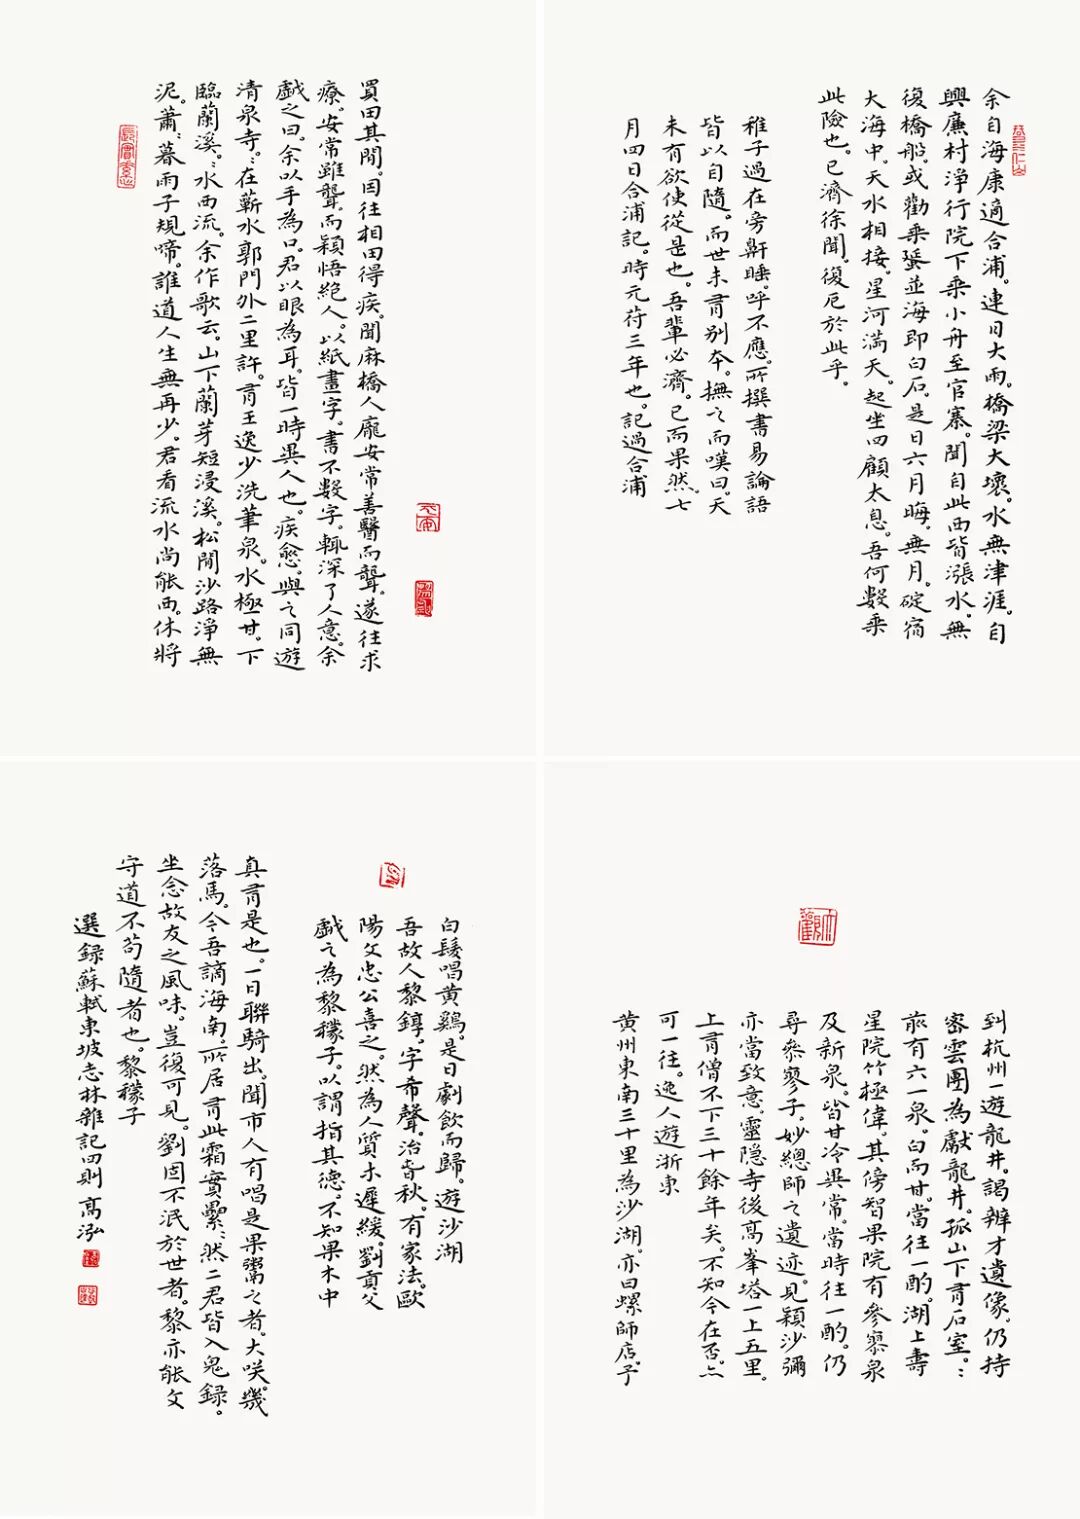 余自海康適合浦。連日大雨。橋梁大壞。水無津涯。自
興廉村淨行院下乘小舟至官寨。聞自此西皆漲水。無
復橋船。或勸乘蜑並海即白石。是日六月晦。無月。碇宿
大海中。天水相接。星河滿天。起坐四顧太息。吾何數乘
此險也。已濟徐聞。復厄於此乎。
稚子過在旁鼾睡。呼不應。所撰書易論語
皆以自隨。而世未有別本。撫之而嘆曰。天
未有欲使從是也。吾輩必濟。已而果然。七
月四日合浦記。時元符三年也。記過合浦
大觀
到杭州一遊龍井。謁辨才遺像。仍持
密雲團為獻龍井。孤山下有石室。〻
前有六一泉。白而甘。當往一酌。湖上壽
星院竹極偉。其傍智果院有參寥泉
及新泉。皆甘冷異常。當時往一酌。仍
尋參寥子。妙總師之遺迹。見穎沙彌
亦當致意。靈隱寺後高峯塔一上五里。
上有僧不下三十餘年矣。不知今在否。亦
可一往。逸人遊浙東
黃州東南三十里為沙湖。亦曰螺師店。予
買田其間。因往相田得疾。聞麻橋人龐安常善醫而聾。遂往求
療。安常雖聾。而穎悟絕人。以紙畫字。書不數字。輒深了人意。余
戲之曰。余以手為口。君以眼為耳。皆一時異人也。疾愈。與之同遊
清泉寺。〻在蘄水郭門外二里許。有王逸少洗筆泉。水極甘。下
臨蘭溪。〻水西流。余作歌云。山下蘭芽短浸溪。松間沙路淨無
泥。蕭〻暮雨子規啼。誰道人生無再少。君看流水尚能西。休將
白髮唱黃雞。是日劇飲而歸。遊沙湖
吾故人黎錞。字希聲。治春秋。有家法。歐
陽文忠公喜之。然為人質木遲緩。劉貢父
戲之為黎檬子。以謂指其德。不知果木中
真有是也。一日聯騎出。聞市人有唱是果鬻之者。大咲。幾
落馬。今吾謫海南。所居有此霜實纍〻。然二君皆入鬼録。
坐念故友之風味。豈復可見。劉固不泯於世者。黎亦能文
守道不苟隨者也。黎檬子
選録蘇軾東坡志林雜記四則 高泓